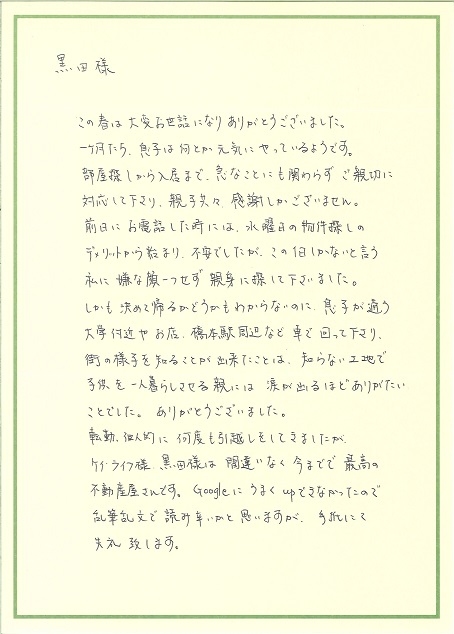 黒田様
この春は大変お世話になりありがとうございました。
一ヶ月たち、息子は何とか元気にやっているようです。
部屋探しから入居まで、急なことにも関わらずご親切に
対応して下り、親子共々、感謝しかございません。
前日にお電話した時には、水曜日の物件探しの
デメリットから始まり、不安でしたが、この1日しかないと言う
私に嫌な顔一つせず親身に探して下さいました。
しかも決めて帰るかどうかもわからないのに、息子が通う
大学付近やお店、橋本駅周辺など車で回って下り、
街の様子を知ることが出来たことは、知らない土地で
子供を一人暮らしさせる親には涙が出るほどありがたい
ことでした。ありがとうございました。
転勤、個人的に何度も引越しをしてきましたが、
ケイ・ライフ様、黒田様は間違いなく今までで最高の
不動産屋さんです。Googleにうまくupできなかったので
乱筆乱文で読み辛いかと思いますが、手紙にて
失礼致します。